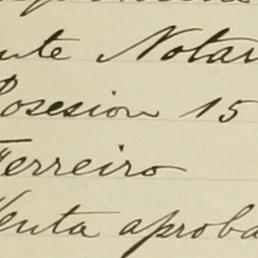 nte Notar
Posesion 15
Ferreiro
Venta aproba